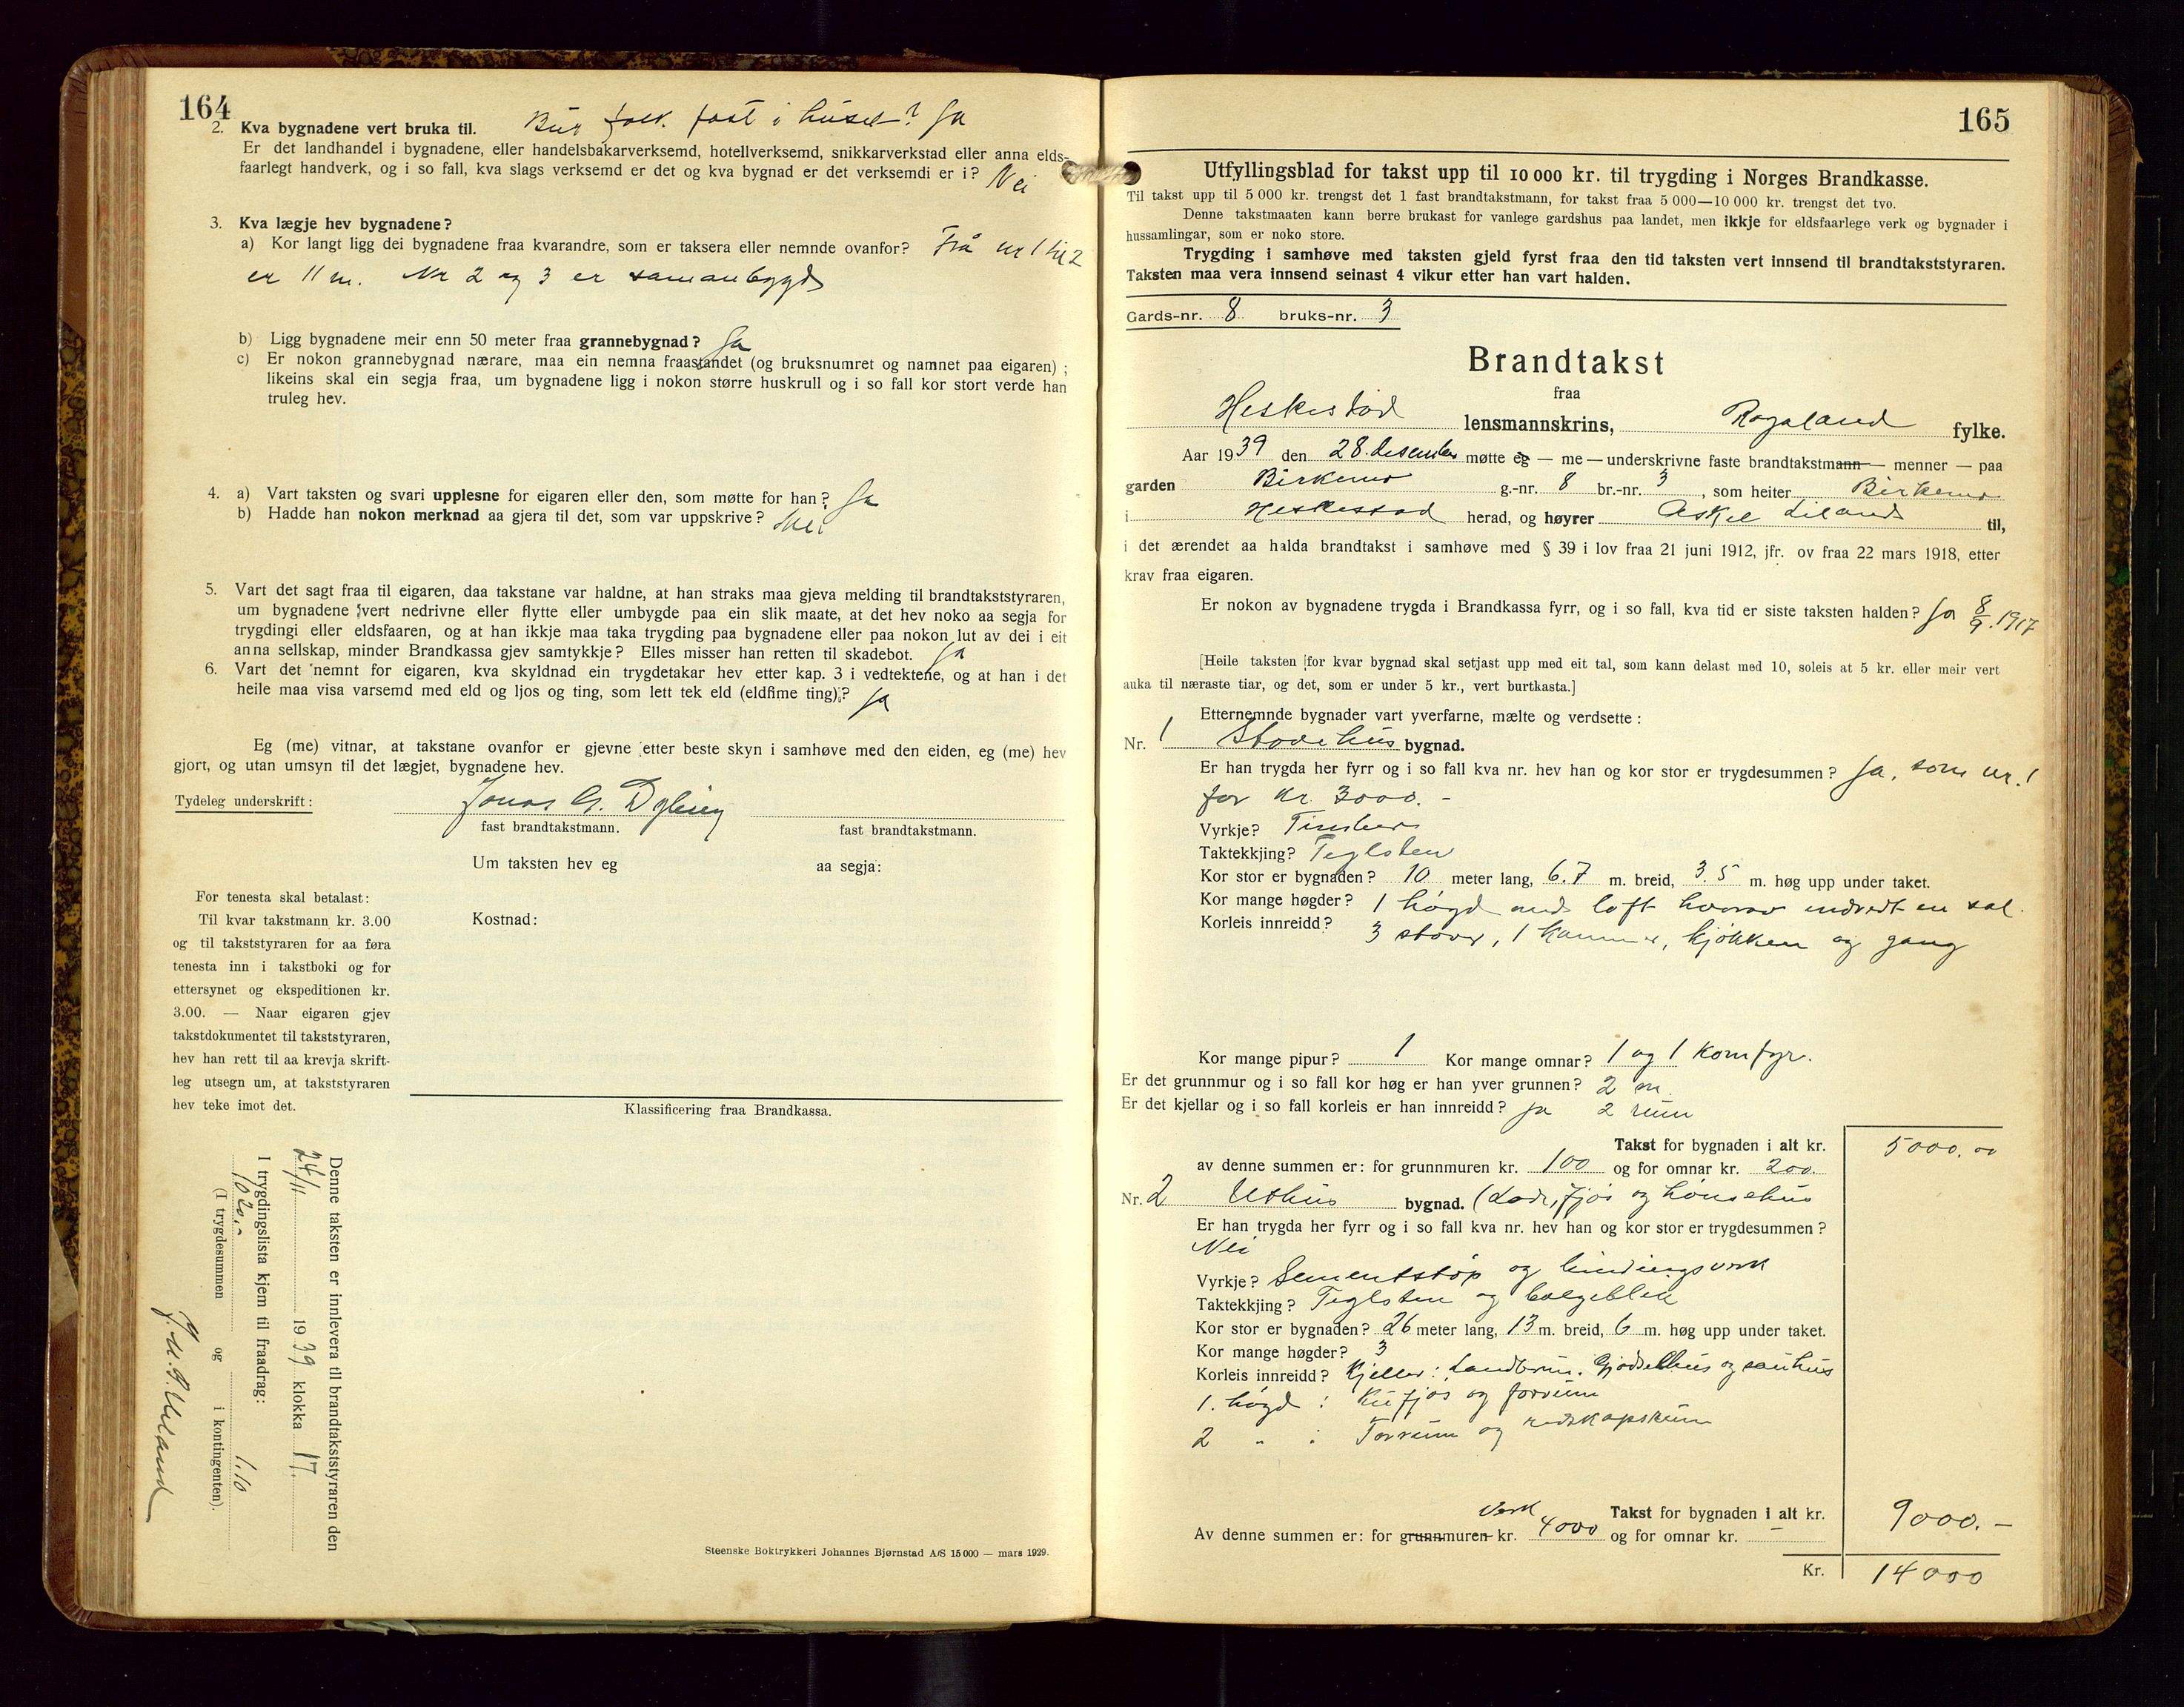 164
2. Kva bygnadene vert bruka til. Bur folk fast i huset? Ja
Er det landhandel i bygnadene, eller handelsbakarverksemd, hotellverksemd, snikkarverkstad eller anna elds-
faarlegt handverk, og i so fall, kva slags verksemd er det og kva bygnad er det verksemdi er i? Nei
3. Kva lægje hev bygnadene?
a) Kor langt ligg dei bygnadene fraa kvarandre, som er taksera eller nemnde ovanfor? Frå nr 1 til 2
er 11 m. Nr 2 og 3 er samanbygd
b) Ligg bygnadene meir enn 50 meter fraa grannebygnad? Ja
c) Er nokon grannebygnad nærare, maa ein nemna fraastandet (og bruksnumret og namnet paa eigaren) ;
likeins skal ein segja fraa, um bygnadene ligg i nokon større huskrull og i so fall kor stort verde han
truleg hev.
4. a) Vart taksten og svari upplesne for eigaren eller den, som møtte for han? Ja
b) Hadde han nokon merknad aa gjera til det, som var uppskrive? Nei
5. Vart det sagt fraa til eigaren, daa takstane var haldne, at han straks maa gjeva melding til brandtakststyraren,
um bygnadene vert nedrivne eller flytte eller umbygde paa ein slik maate, at det hev noko aa segja for
trygdingi eller eldsfaaren, og at han ikkje maa taka trygding paa bygnadene eller paa nokon lut av dei i eit
anna sellskap, minder Brandkassa gjev samtykkje? Elles misser han retten til skadebot. Ja
6. Vart det nemnt for eigaren, kva skyldnad ein trygdetakar hev etter kap. 3 i vedtektene, og at han i det
heile maa visa varsemd med eld og ljos og ting, som lett tek eld (eldfime ting)? Ja
Eg (me) vitnar, at takstane ovanfor er gjevne etter beste skyn i samhøve med den eiden, eg (me) hev
gjort, og utan umsyn til det lægjet, bygnadene hev.
Tydeleg underskrift: Jonas G. Dybing
fast brandtakstmann. fast brandtakstmann.
Um taksten hev eg aa segja:
For tenesta skal betalast:
Til kvar takstmann kr. 3.00
og til takststyraren for aa føra
tenesta inn i takstboki og for
ettersynet og ekspeditionen kr.
3.00. — Naar eigaren gjev
takstdokumentet til takststyraren,
hev han rett til aa krevja skrift-
leg utsegn um, at takststyraren
hev teke imot det.
Kostnad:
Klassificering fraa Brandkassa.
Denne taksten er innlevera til brandtakststyraren den
24/11 1939 klokka 17.
I trygdingslista kjem til fraadrag:
1020,- 1.10
(I trygdesummen og i kontingenten).
Steenske Boktrykkeri Johannes Bjørnstad A/S 15 000 — mars 1929.
165
Utfyllingsblad for takst upp til 10 000 kr. til trygding i Norges Brandkasse.
Til takst upp til 5 000 kr. trengst det 1 fast brandtakstmann, for takst fraa 5 000—10 000 kr. trengst det tvo.
Denne takstmaaten kann berre brukast for vanlege gardshus paa landet, men ikkje for eldsfaarlege verk og bygnader i
hussamlingar, som er noko store.
Trygding i samhøve med taksten gjeld fyrst fraa den tid taksten vert innsend til brandtakststyraren.
Taksten maa vera innsend seinast 4 vikur etter han vart halden.
Gards-nr. 8 bruks-nr. 3
Brandtakst
fraa
Heskestad lensmannskrins, Rogaland fylke.
Aar 1939 den 28. desember møtte eg — me — underskrivne faste brandtakstmann — menner — paa
garden Birkemo g.-nr. 8 br.-nr. 3, som heiter Birkemo
i Heskestad herad, og høyrer Askel Liland til,
i det ærendet aa halda brandtakst i samhøve med § 39 i lov fraa 21 juni 1912, jfr. ov fraa 22 mars 1918, etter
krav fraa eigaren.
Er nokon av bygnadene trygda i Brandkassa fyrr, og i so fall, kva tid er siste taksten halden? Ja 8/9. 1917
[Heile taksten for kvar bygnad skal setjast upp med eit tal, som kann delast med 10, soleis at 5 kr. eller meir vert
auka til næraste tiar, og det, som er under 5 kr., vert burtkasta.]
Etternemnde bygnader vart yverfarne, mælte og verdsette :
Nr. 1 Stovehus bygnad.
Er han trygda her fyrr og i so fall kva nr. hev han og kor stor er trygdesummen? Ja, som nr. 1
for kr. 3000. -
Vyrkje? Timber
Taktekkjing? Teglsten
Kor stor er bygnaden? 10 meter lang, 6.7 m. breid, 3.5 m. høg upp under taket.
Kor mange høgder? 1 høgd med loft hvorav indredt en sal.
Korleis innreidd? 3 stover, 1 kammer, kjøkken og gang
Kor mange pipur? 1 Kor mange omnar? 1 og 1 komfyr.
Er det grunnmur og i so fall kor høg er han yver grunnen? 2 m.
Er det kjellar og i so fall korleis er han innreidd? Ja 2 rum
Takst for bygnaden i alt kr. 5000.00
av denne summen er: for grunnmuren kr. 100 og for omnar kr. 200
Nr. 2 Uthus bygnad. (Lade, fjøs og hønsehus
Er han trygda her fyrr og i so fall kva nr. hev han og kor stor er trygdesummen?
Nei
Vyrkje? Sementstøp og bindingsverk
Taktekkjing? Teglsten og bølgeblik
Kor stor er bygnaden? 26 meter lang, 13 m. breid, 6 m. høg upp under taket.
Kor mange høgder? 3
Korleis innreidd? Kjeller: Landbrum. Gjødselhus og sauhus
1. høgd : Kufjøs og forrum
2 " : Forrum og redskapsrum
Takst for bygnaden i alt kr. 9000.-
Av denne summen er: for grunnmuren verk kr. 4000 og for omnar kr. -
Kr. 14000